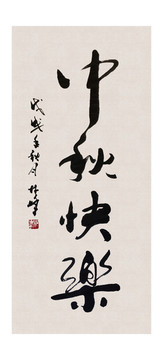 中秋快樂
戊戌年秋月